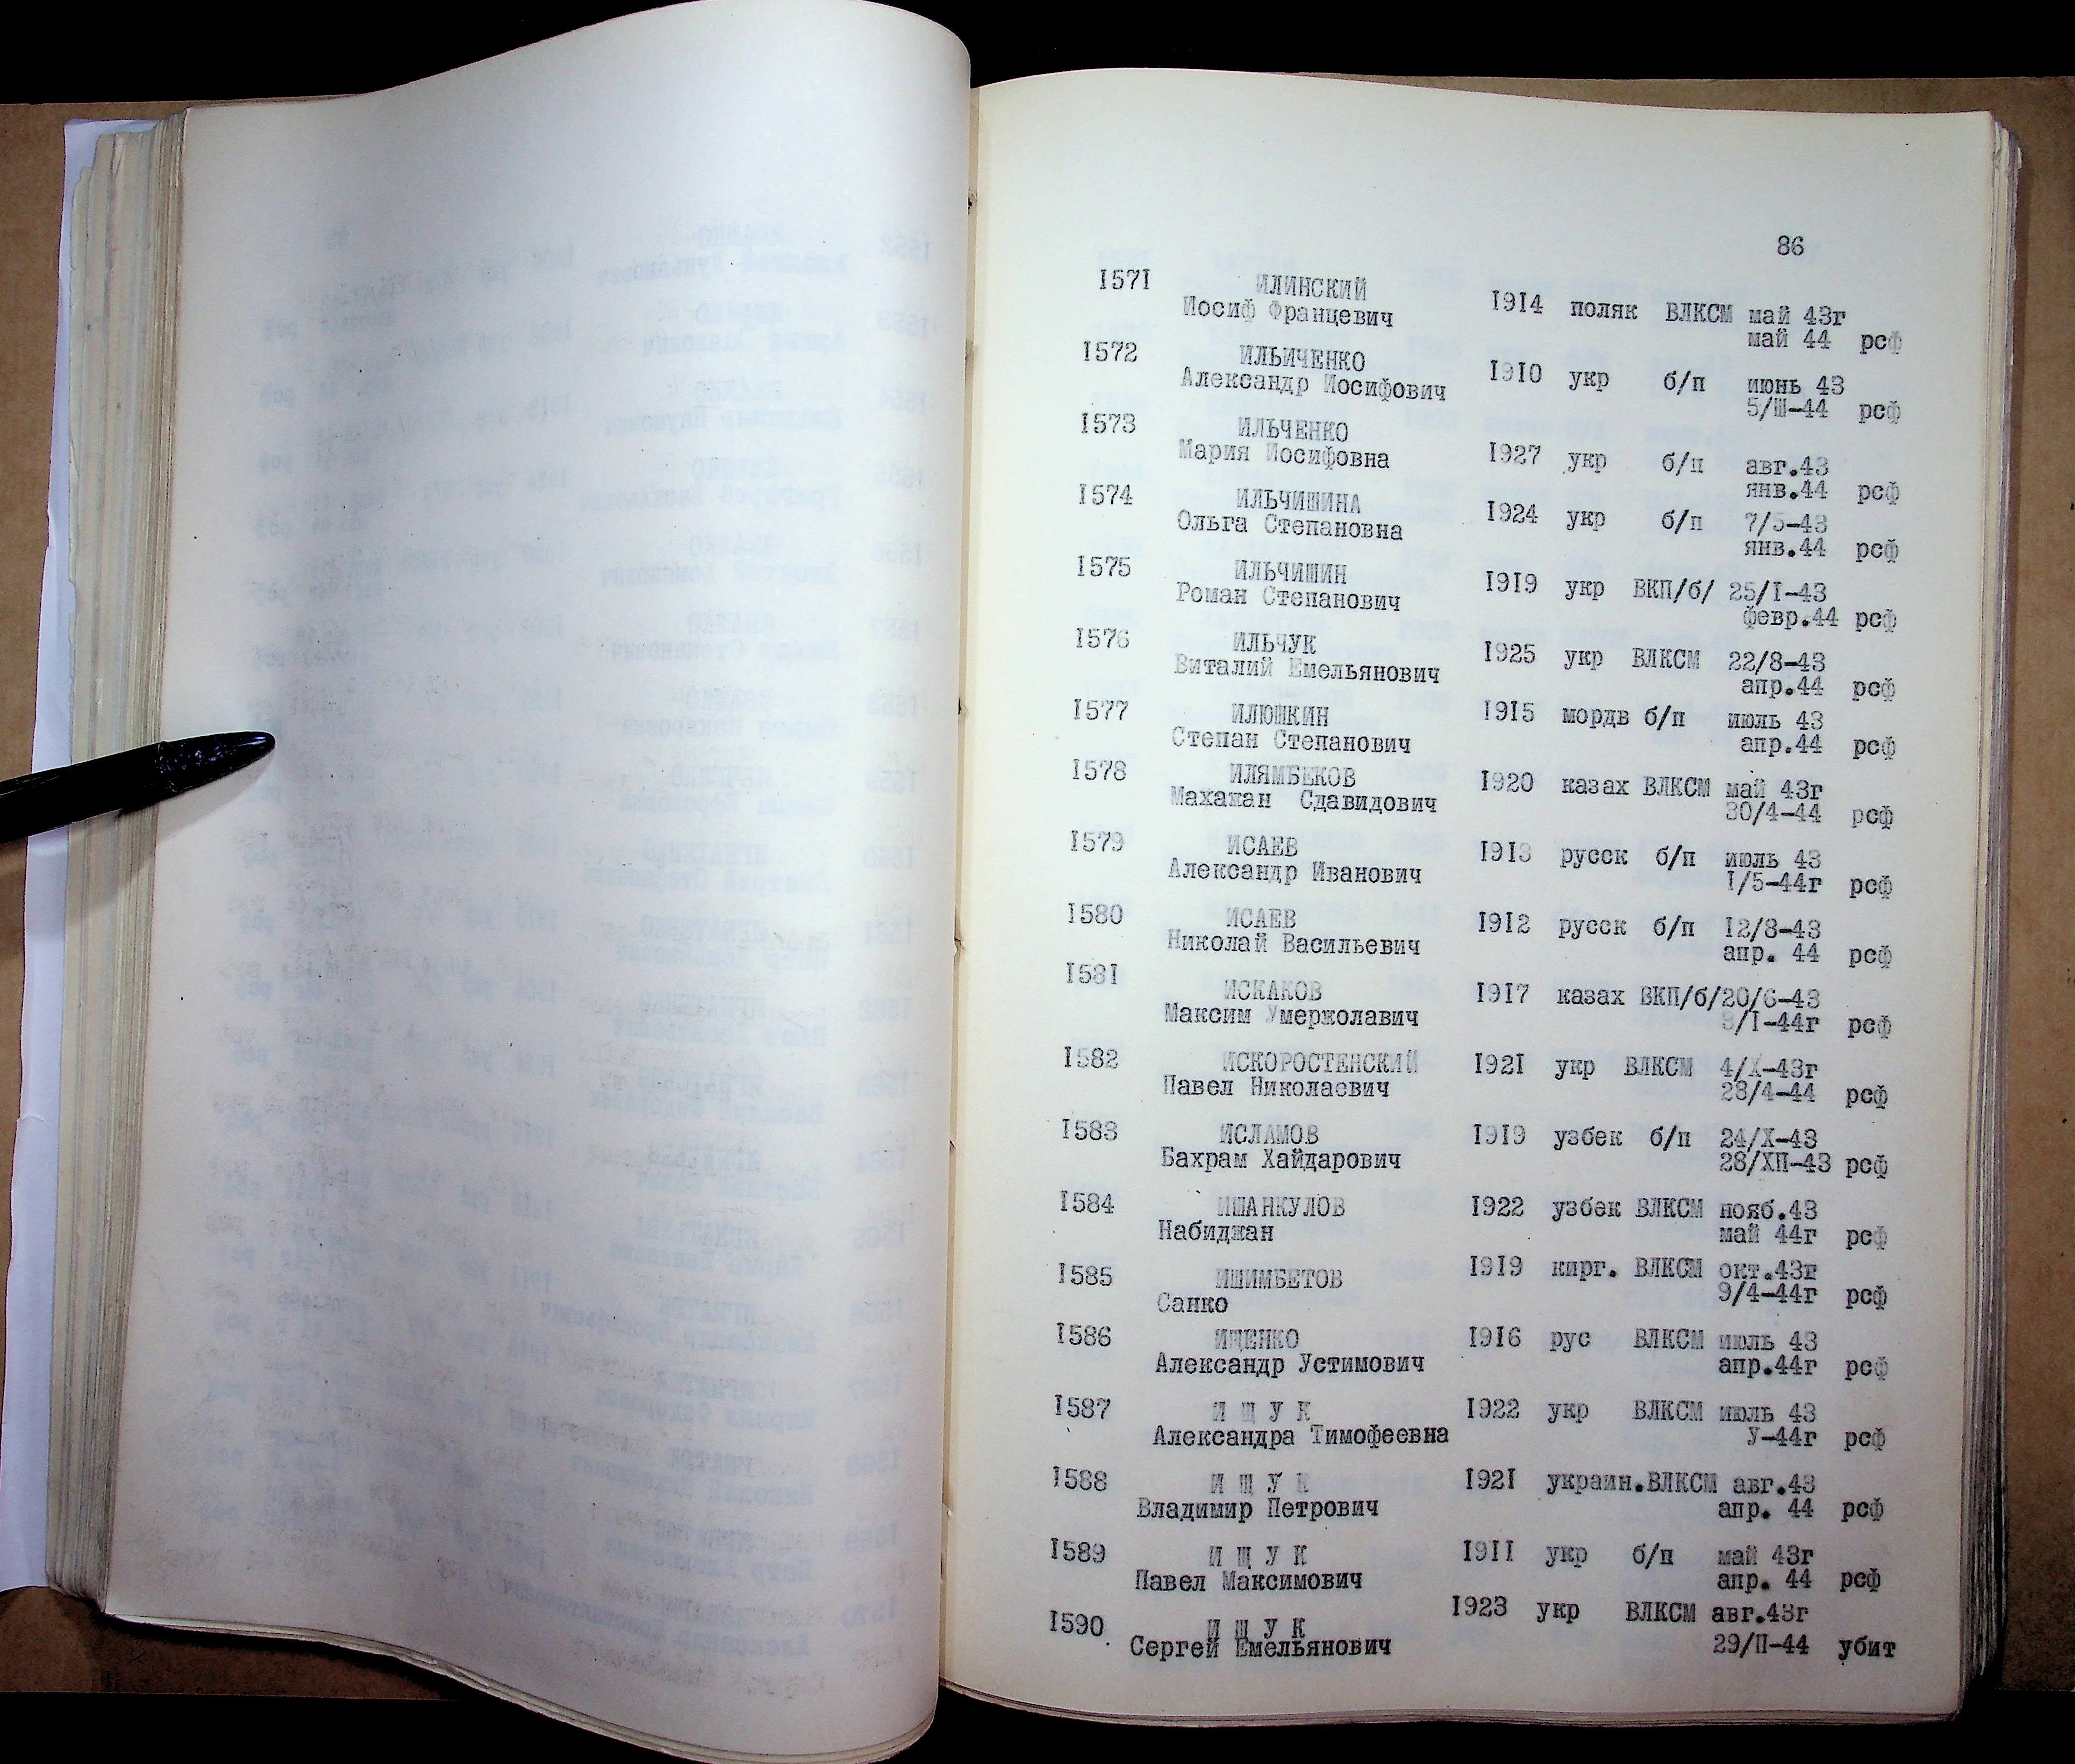 86
1571 ИЛИНСКИЙ
Иосиф Францевич 1914 поляк ВЛКСМ май 43г
май 44 рсф
1572 ИЛЬИЧЕНКО
Александр Иосифович 1910 укр б/п июнь 43
5/Ш-44 рсф
1573 ИЛЬЧЕНКО
Мария Иосифовна 1927 укр б/п авг.43
янв.44 рсф
1574 ИЛЬЧИШИНА
Ольга Степановна 1924 укр б/п 7/5-43
янв.44 рсф
1575 ИЛЬЧИШИН
Роман Степанович 1919 укр ВКП/б/ 25/I-43
февр.44 рсф
1576 ИЛЬЧУК
Виталий Емельянович 1925 укр ВЛКСМ 22/8-43
апр.44 рсф
1577 ИЛЮШКИН
Степан Степанович 1915 мордв б/п июль 43
апр.44 рсф
1578 ИЛЯМБЕКОВ
Махажан Сдавидович 1920 казах ВЛКСМ май 43г
30/4-44 рсф
1579 ИСАЕВ
Александр Иванович 1913 русск б/п июль 43
I/5-44г рсф
1580 ИСАЕВ
Николай Васильевич 1912 русск б/п 12/8-43
апр. 44 рсф
1581 ИСКАКОВ
Максим Умержолавич 1917 казах ВКП/б/20/6-43
3/I-44г рсф
1582 ИСКОРОСТЕНСКИЙ
Павел Николаевич 1921 укр ВЛКСМ 4/Х-43г
28/4-44 рсф
1583 ИСЛАМОВ
Бахрам Хайдарович 1919 узбек б/п 24/Х-43
28/ХП-43 рсф
1584 ИШАНКУЛОВ
Набиджан 1922 узбек ВЛКСМ нояб.43
май 44г рсф
1585 ИШИМБЕТОВ
Санко 1919 кирг. ВЛКСМ окт.43г
9/4-44г рсф
1586 ИЩЕНКО
Александр Устимович 1916 рус ВЛКСМ июль 43
апр.44г рсф
1587 И Щ У К
Александра Тимофеевна 1922 укр ВЛКСМ июль 43
У-44г рсф
1588 И Щ У К
Владимир Петрович 1921 украин.ВЛКСМ авг.43
апр. 44 рсф
1589 И Щ У К
Павел Максимович 1911 укр б/п май 43г
апр. 44 рсф
1590 И Щ У К
Сергей Емельянович 1923 укр ВЛКСМ авг.43г
29/П-44 убит